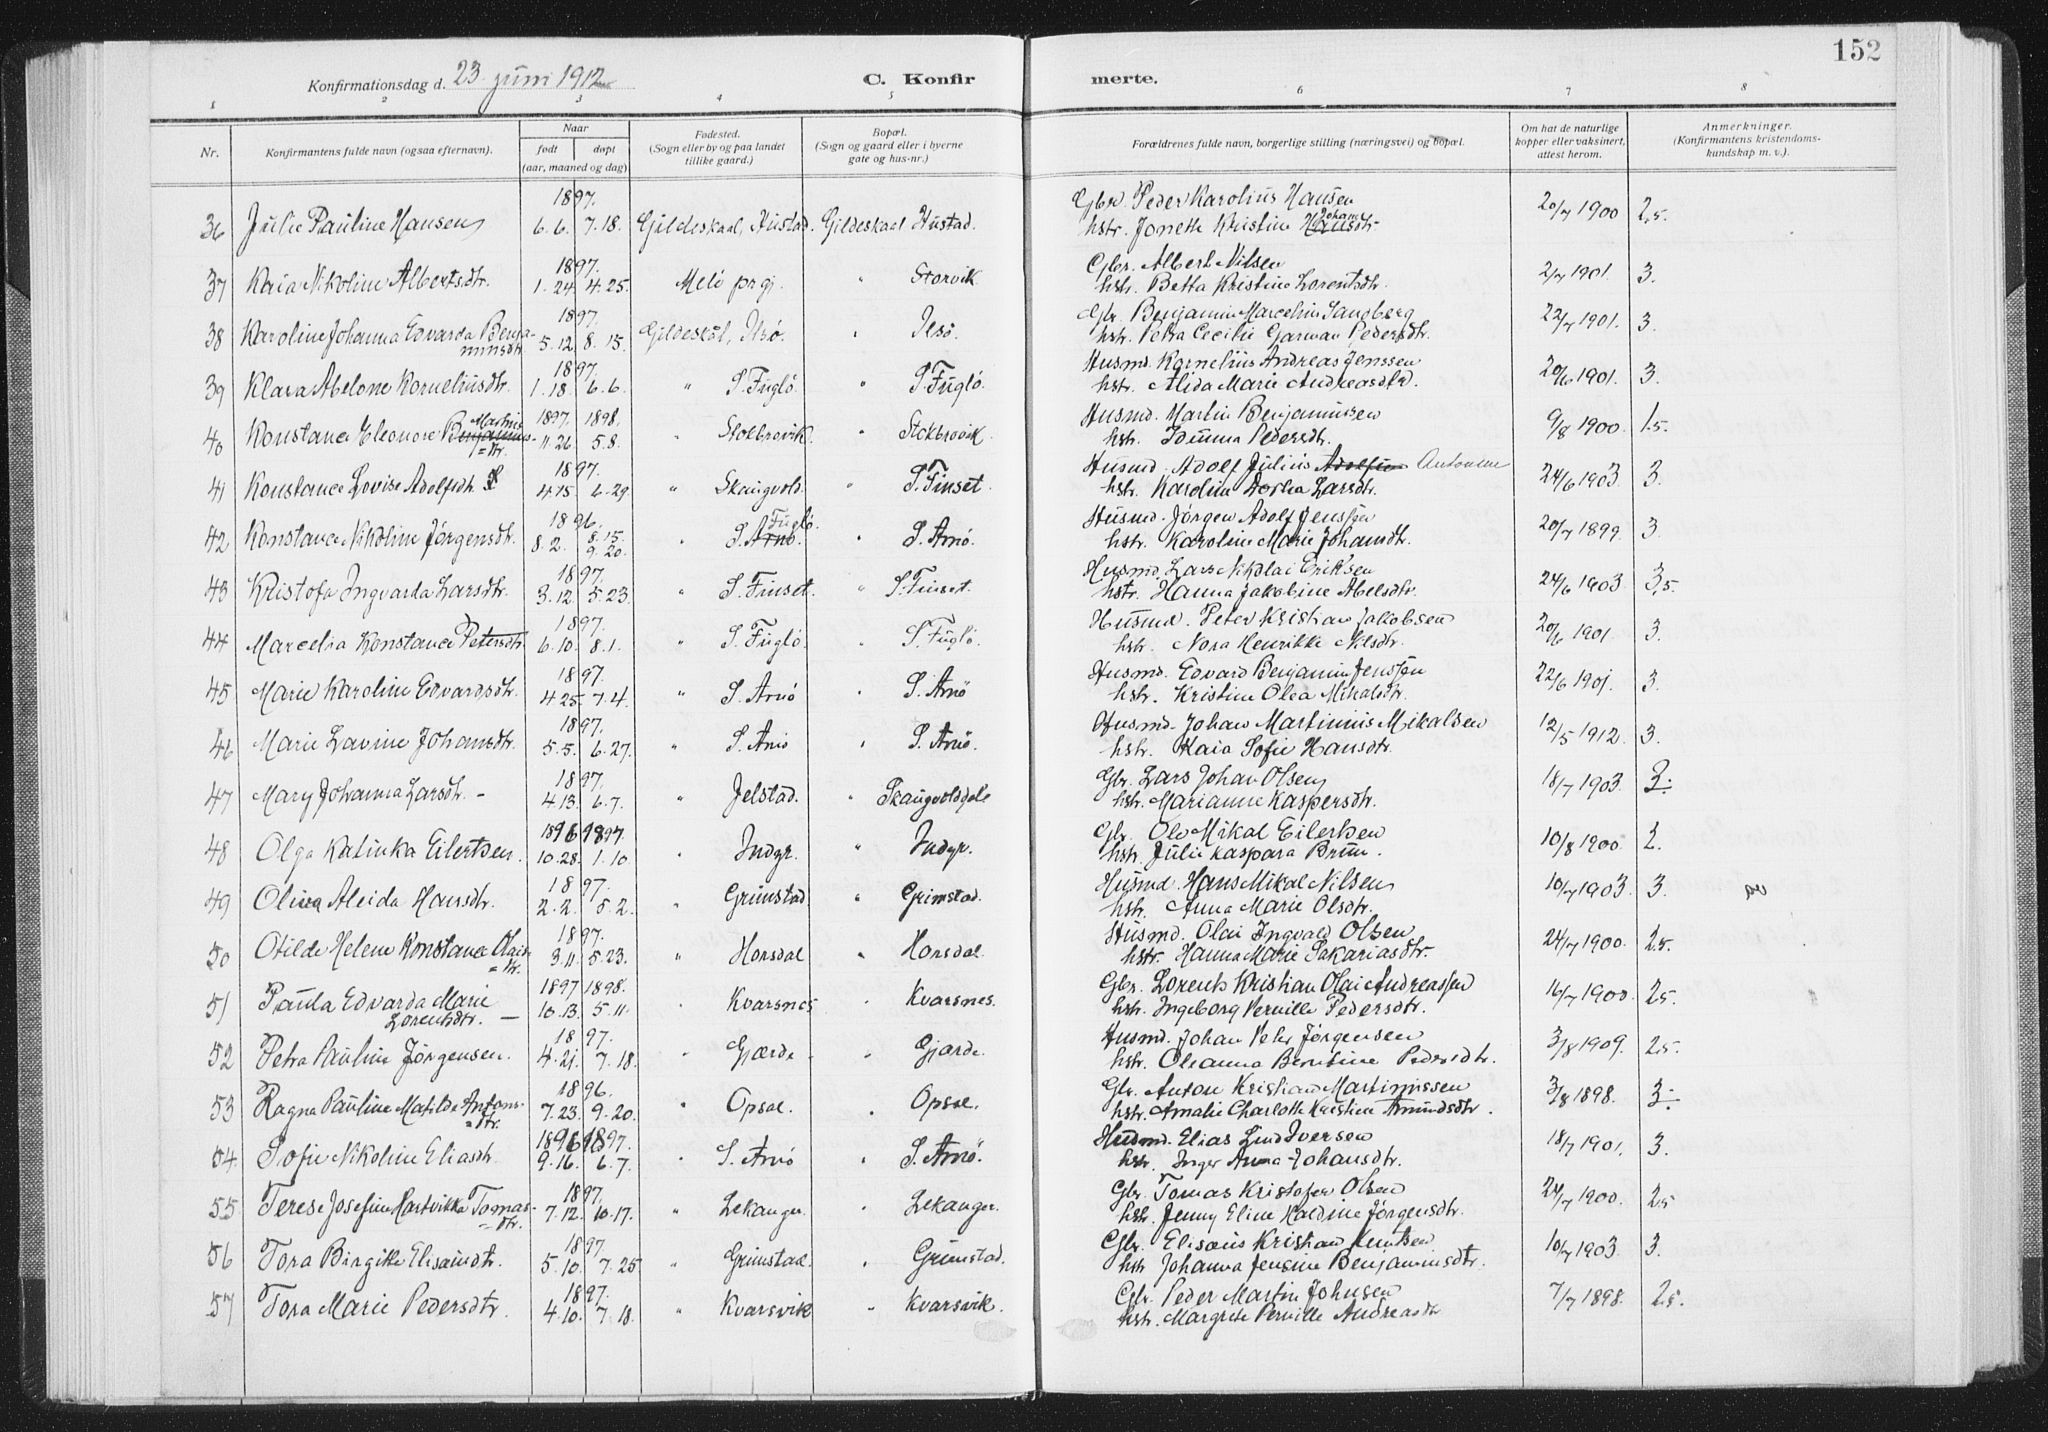 152
Konfirmationsdag d. 23. juni 1912
C. Konfirmerte.
1 2 3 4 5 6 7 8
Nr. Konfirmantens fulde navn (ogsaa efternavn). Naar født døpt (aar, maaned og dag) Fødested. (Sogn eller by og paa landet tillike gaard.) Bopæl. (Sogn og gaard eller i byerne gate og hus-nr.) Forældrenes fulde navn, borgerlige stilling (næringsvei) og bopæl. Om hat de naturlige kopper eller vaksinert, attest herom. Anmerkninger. (Konfirmantens kristendomskundskap m. v.).
1897. Gbr. Peder Karolius Hansen
36 Julie Pauline Hansen 6.6. 7.18. Gildeskaal, Hustad. Gildeskaal Hustad. hstr. Joneth Kristine Hansdtr. Johans 20/7 1900 2,5.
1897. Gbr. Albert Nilsen
37 Kaia Nikoline Albertsdtr. 1.24 4.25. Melö prgj. " Storvik. hstr. Betta Kristine Lorentsdtr. 2/7 1901. 3.
1897. Gbr. Benjamin Marcelius Sandberg
38 Karoline Johanna Edvarda Benjaminsdtr. 5.12 8.15. Gildeskål, Ilsö. " Ilsö. hstr. Petra Cecilie Garman Pedersdtr. 22/7 1901. 3.
1897. Husmd. Kornelius Andreas Jenssen
39 Klara Abelone Korneliusdtr. 1.18. 6.6. " S. Fuglö. " S. Fuglö. hstr. Alida Marie Andreasdtr. 20/6 1901. 3.
1897. 1898. Husmd. Martin Benjaminsen
40 Konstance Eleonore Benjamins= Martins dtr. 11.26. 5.8. " Stokbrovik. " Stokbrovik. hstr. Idunna Pedersdtr. 9/8 1900. 1.5.
1897. Husmd. Adolf Julius Adolfsen Antonsen
41 Konstance Lovise Adolfsdtr. 4.15. 6.29. " Skaugvold. " S. Finset. hstr. Karoline Dorthea Larsdtr. 24/6 1903. 3.
1896. Husmd. Jörgen Adolf Jenssen
42 Konstance Nikoline Jörgensdtr. 8.2. 8.15. 9.20. " S. Arnö. Fuglö. " S. Arnö. hstr. Karoline Marie Johansdtr. 20/7 1899. 3
1897. Husmd. Lars Nikolai Eriksen
43 Kristofa Ingvarda Larsdtr. 3.12. 5.23. " S. Finset. " S. Finset. hstr. Hanna Jakobine Abelsdtr. 24/6 1903 3,5.
1897. Husmd. Peter Kristian Jakobsen
44 Marcelia Konstance Petersdtr. 6.10. 8.1. " S. Fuglö. " S. Fuglö. hstr. Nora Henrikke Nilsdtr. 20/6 1901. 3.
1897. Husmd. Edvard Benjamin Jenssen
45 Marie Karoline Edvardsdtr. 4.25. 7.4. " S. Arnö " S. Arnö hstr. Kristine Olea Mikalsdtr. 22/6 1901. 3.
1897. Husmd. Johan Martinius Mikalsen
46 Marie Lavine Johansdtr. 5.5. 6.27. " S. Arnö " S. Arnö. hstr. Kaia Sofie Hansdtr. 12/5 1912. 3.
1897. Gbr. Lars Johan Olsen
47 Mary Johanna Larsdtr. - 4.13. 6.7. " Jelstad. " Skaugvoldgale hstr. Marianne Kaspersdtr. 18/7 1903. 2.
1896 1897. Gbr. Ole Mikal Eilertsen
48 Olga Katinka Eilertsen. 10.28. 1.10. " Indyr. " Indyr. hstr. Julie Kaspara Bruun. 10/8 1900. 2.
1897. Husmd. Hans Mikal Nilsen
49 Olina Aleida Hansdtr. 2.2. 5.2. " Grimstad. " Grimstad. hstr. Anna Marie Olsdtr. 10/7 1903. 3.
1897. Husmd. Olai Ingvald Olsen
50 Otilde Helene Konstance Olais=dtr. 3.11. 5.23. " Horsdal " Horsdal. hstr. Hanna Marie Sakariasdtr. 24/7 1900. 2.5.
1897 1898. Gbr. Lorents Kristian Olai Andreassen
51 Paula Edvarda Marie Lorentsdtr. - 10.13. 5.11. " Kvarsnes " Kvarsnes. hstr. Ingeborg Pernille Pedersdtr. 16/7 1900. 2.5.
1897. Husmd. Johan Peter Jörgensen
52 Petra Pauline Jörgensen. 4.21. 7.18. " Gjærde " Gjærde. hstr. Oleanna Berntine Pedersdtr. 3/8 1909. 2.5.
1896. Gbr. Anton Kristian Martinussen
53 Ragna Pauline Matilde Antons=dtr. 7.23. 9.20. " Opsal. " Opsal. hstr. Amalie Charlotte Kristine Amundsdtr. 3/8 1898. 3.
1896 1897. Husmd. Elias Lind Iversen
54. Sofie Nikoline Eliasdtr. 9.16. 6.7. " S. Arnö " S. Arnö. hstr. Inger Anna Johansdtr. 18/7 1901. 3.
1897. Gbr. Tomas Kristofer Olsen
55 Terese Josefine Hartvikka Tomas=dtr. 7.12. 10.17. " Lekanger. " Lekanger. hstr. Jenny Eline Kaldine Jörgensdtr. 24/7 1900. 2.5
1897. Gbr. Elisæus Kristian Knutsen
56 Tora Birgitte Elisæusdtr. 5.10. 7.25 " Grimstad. " Grimstad. hstr. Johanna Jensine Benjaminsdtr. 10/7 1903. 3.
1897. Gbr. Peder Martin Johnsen
57 Tora Marie Pedersdtr. 4.10. 7.18. " Kvarsvik " Kvarsvik. hstr. Margrete Pernille Andreasdtr 7/7 1898. 2.5.